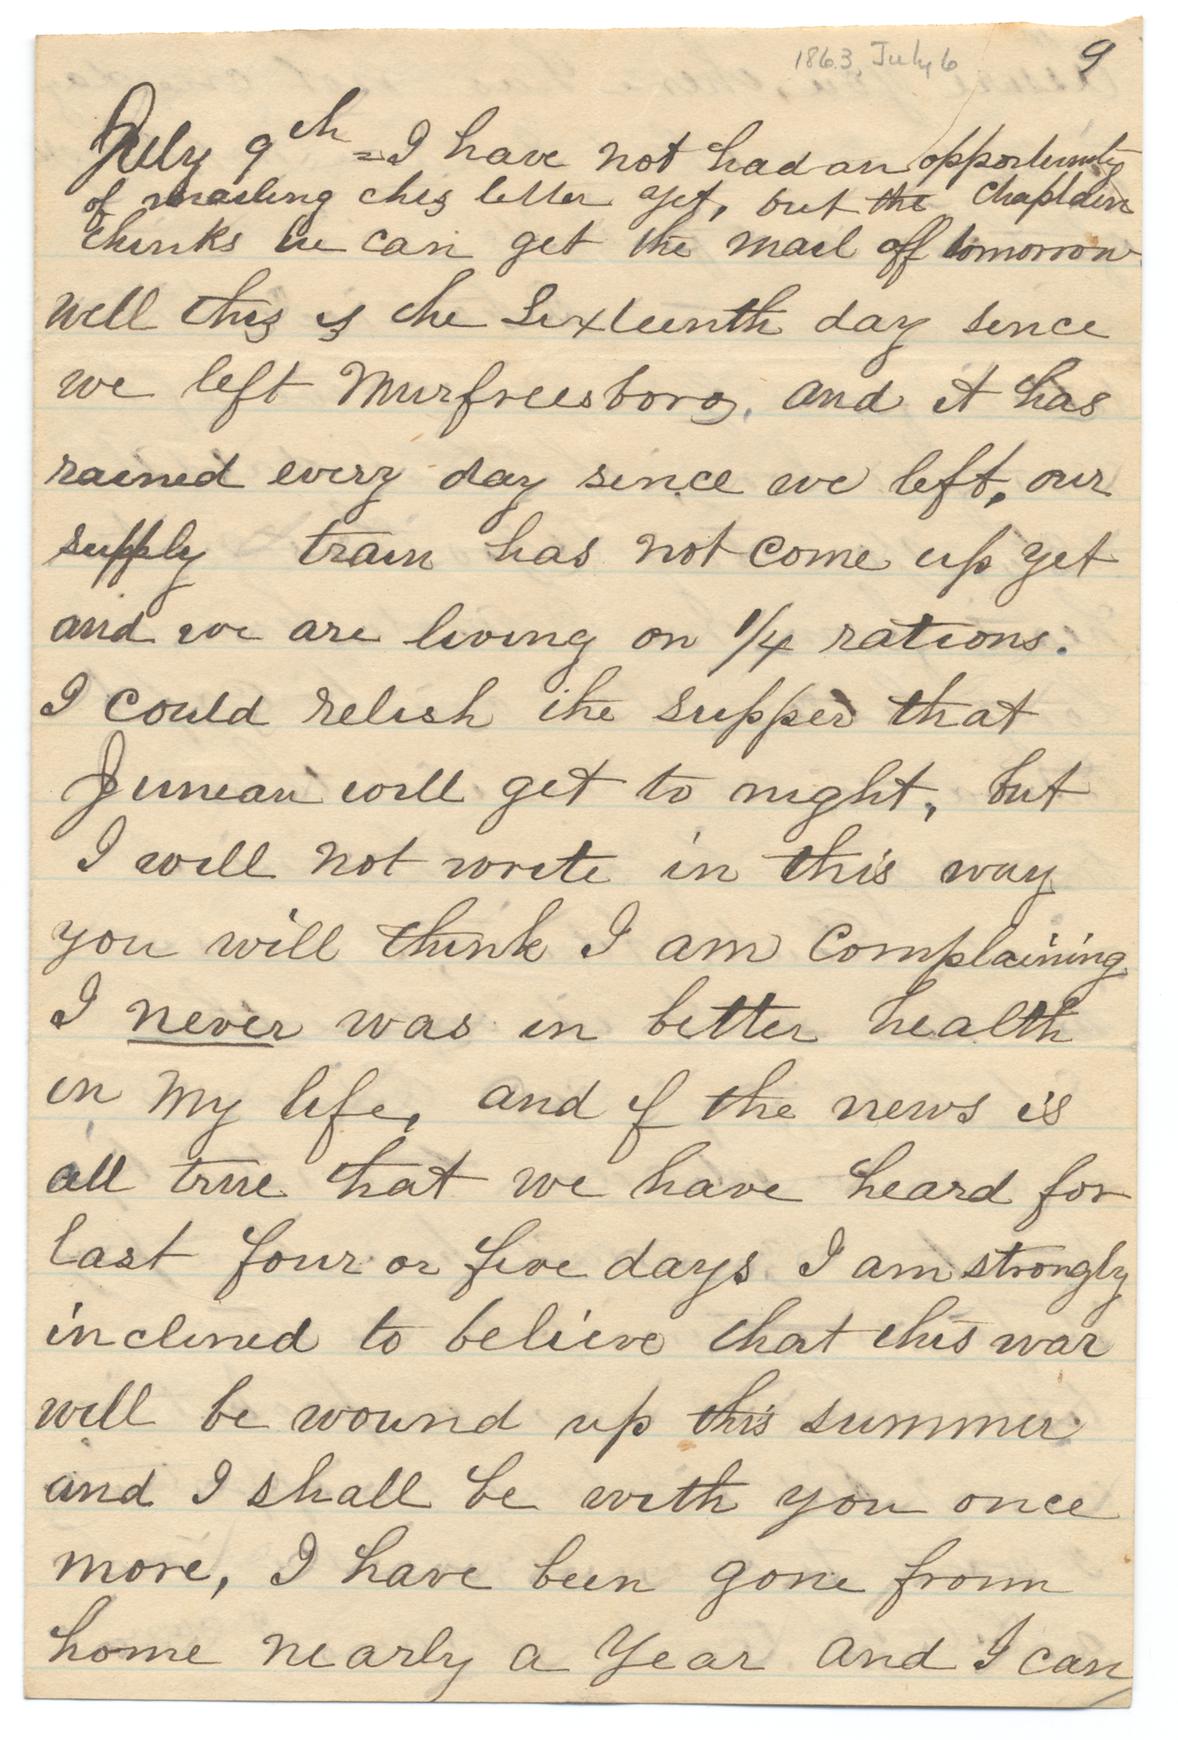 1863, July 6
9
July 9th = I have not had an opportunity
of mailing this letter yet, but the Chaplain
thinks he can get the mail off tomorrow
well this is the Sixteenth day since
we left Murfreesboro, and it has
rained every day since we left, our
supply train has not come up yet
and we are living on 1/4 rations.
I could relish the supper that
Juneau will get to night, but
I will not write in this way
you will think I am Complaining
I never was in better health
in my life, and if the news is
all true that we have heard for
last four or five days I am strongly
inclined to believe that this war
will be wound up this summer
and I shall be with you once
more, I have been gone from
home nearly a Year and I can